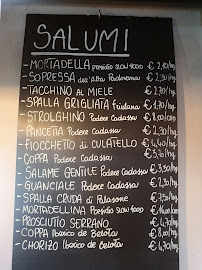 SALUMI
- MORTADELLA presidio SLOW FOOD € 2,10/hg
- SOPRESSA dell'Alta Padovana € 2,30/hg
- TACCHINO AL MIELE € 2,70/hg
- SPALLA GRIGLIATA friulana € 1,70/hg
- STROLGHINO Podere Cadassa
- PANCETTA Podere Cadassa
- FIOCCHETTO di CULATELLO € 4,40/hg
- COPPA Podere Cadassa
- SALAME GENTILE Podere Cadassa
- GUANCIALE Podere Cadassa € 2,50/hg
- SPALLA CRUDA di Palasone
- MORTADELLINA Presidio SLOW FOOD
- PROSCIUTTO SERRANO
- COPPA Iberico de Bellota
- CHORIZO Iberico de Bellota € 4,70/hg